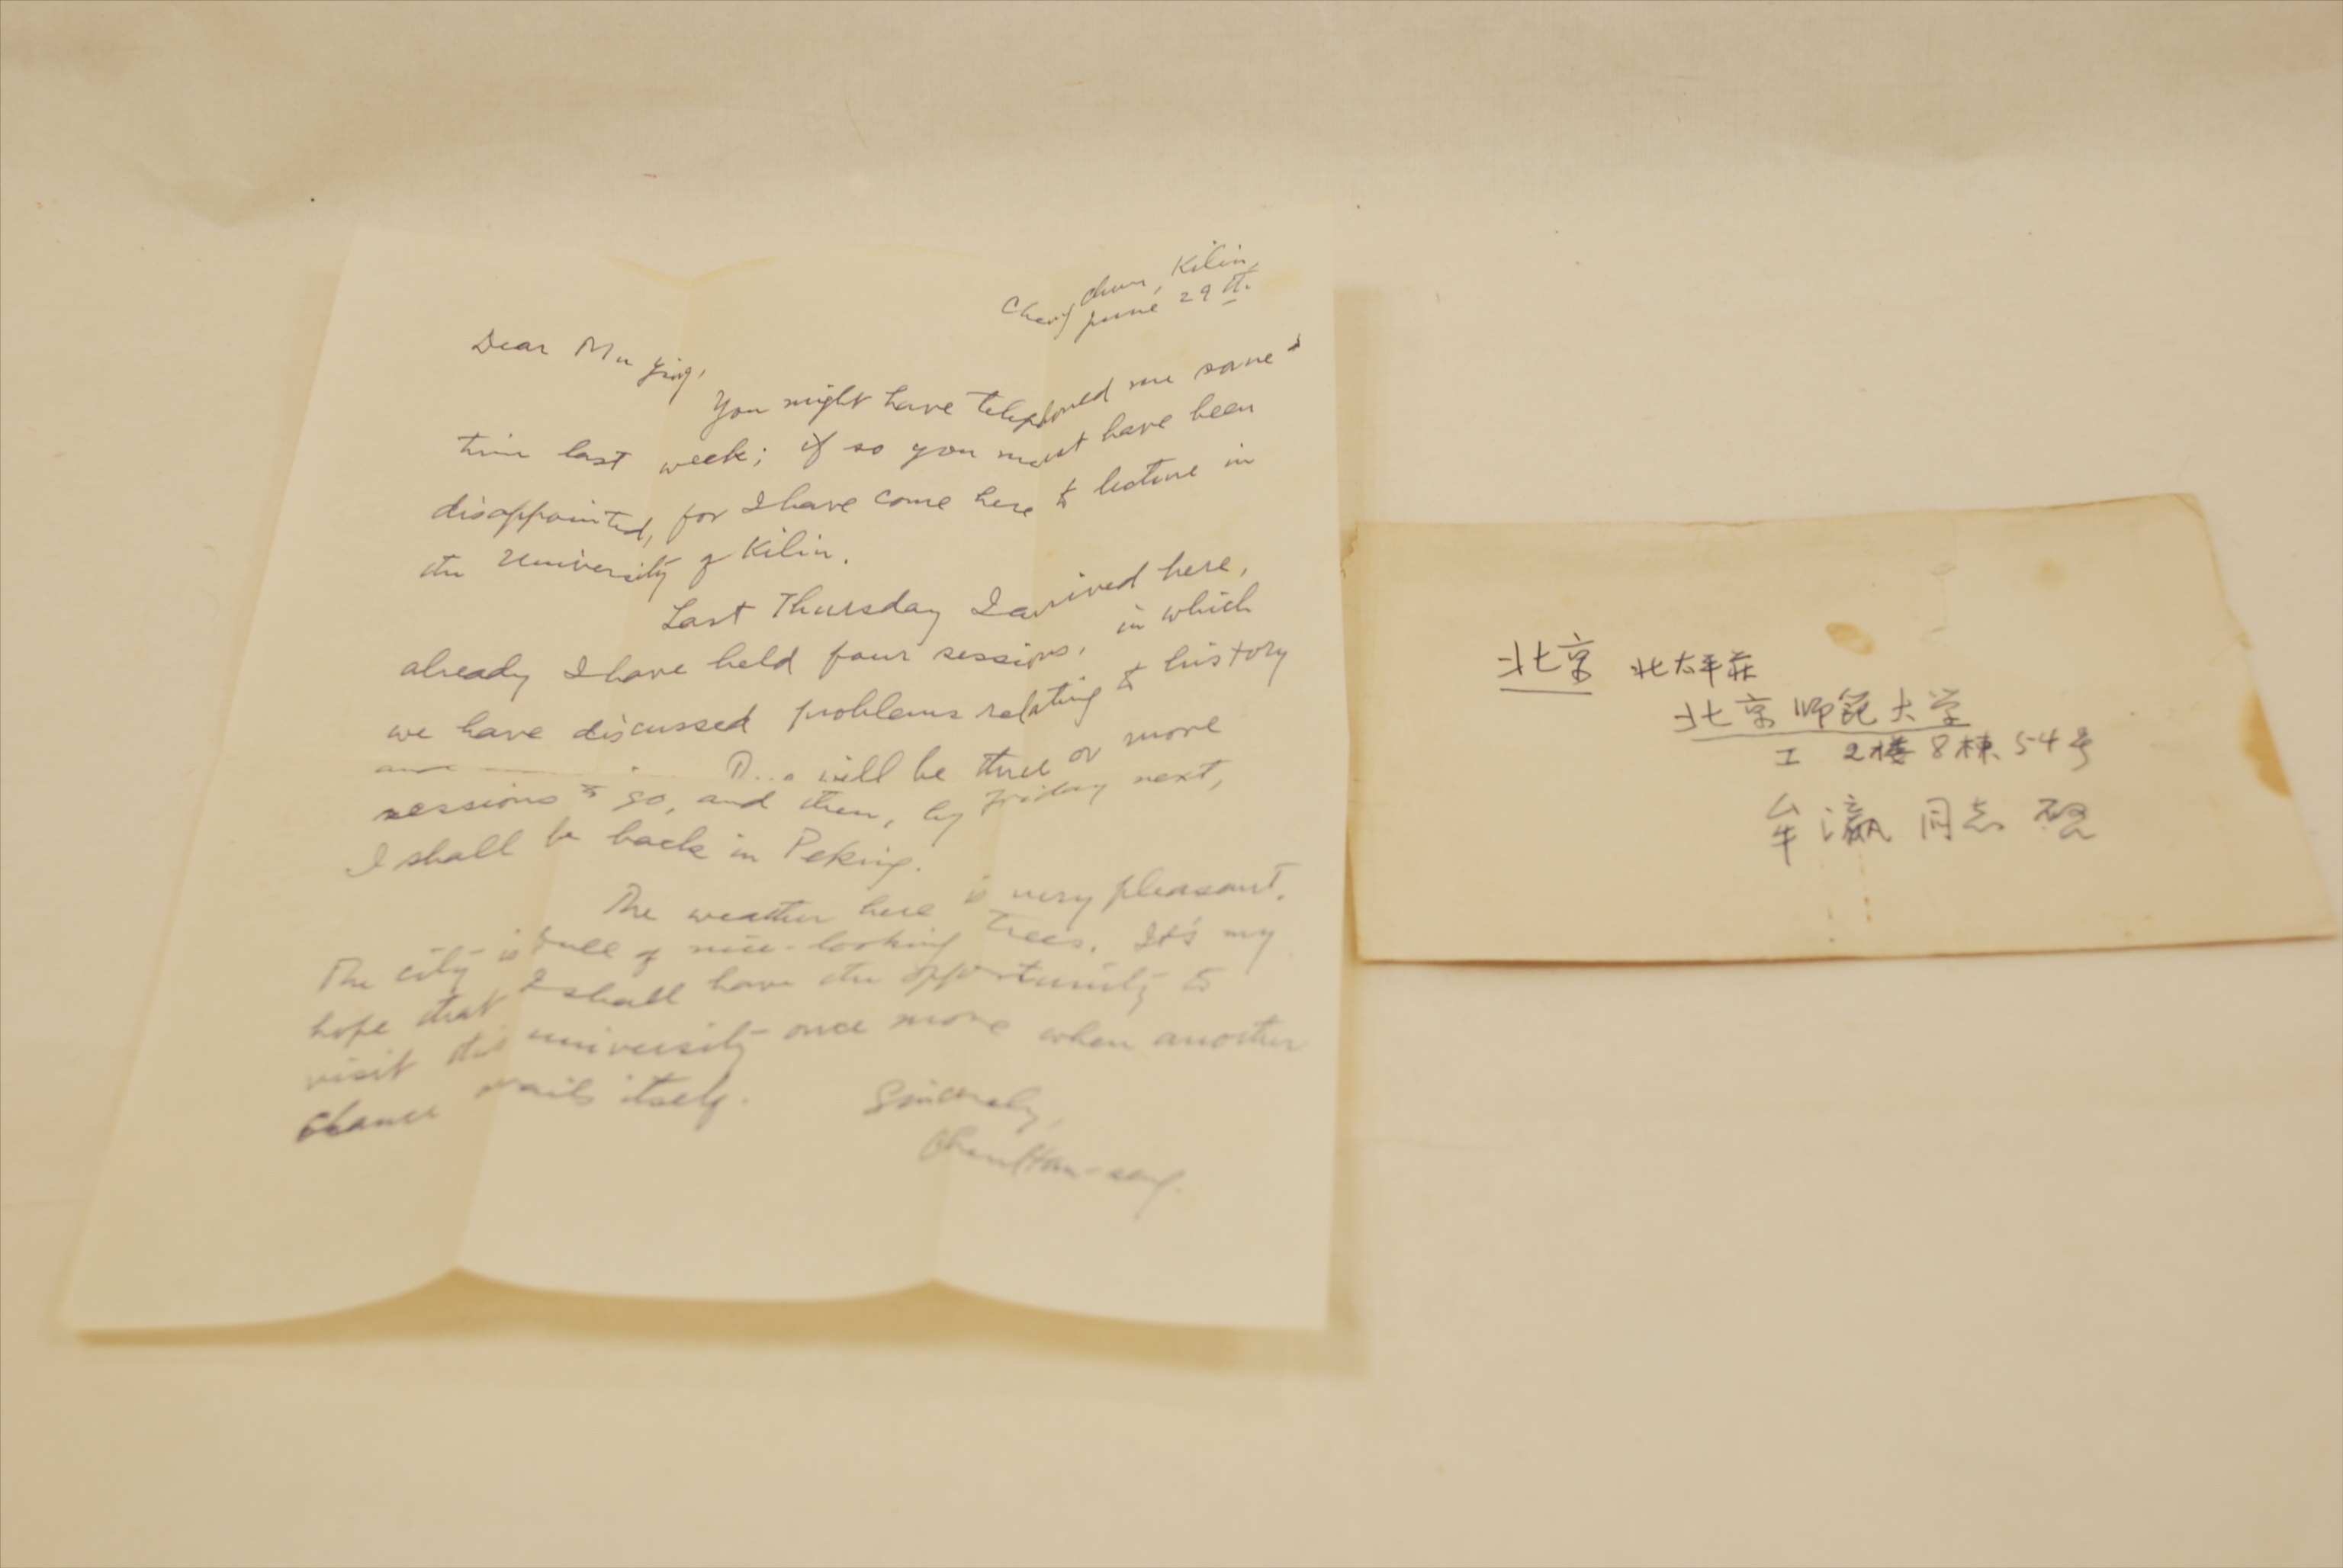 Chang chun, Kilin,
June 29th.
Dear Mu Ying,
You might have telephoned me some
time last week; if so you must have been
disappointed, for I have come here to lecture in
the University of Kilin.
Last Thursday I arrived here,
already I have held four sessions, in which
we have discussed problems relating to history
will be three or more
sessions to go, and then, by Friday next,
I shall be back in Peking.
The weather here is very pleasant.
The city is full of nice-looking trees. It's my
hope that I shall have the opportunity to
visit this university once more when another
chance itself.
Sincerely,
北京 北太平庄
北京师范大学
工 2楼 8栋 54号
牟瀛 同志